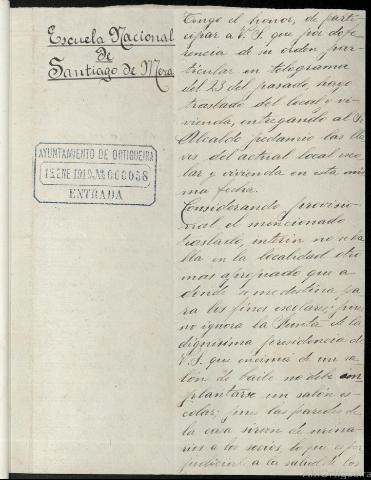 Escuela Nacional
de
Santiago de Mera
AYUNTAMIENTO DE ORTIGUEIRA
ENE. 1919
ENTRADA
Tengo el honor, de parti-
cipar a V.S. que por defe-
rencia de su orden par-
ticular en telegrama
del 23 del pasado, hago
traslado del local y vi-
vienda, entregando al Sr.
Alcalde pedáneo las lla-
ves del actual local esco-
lar y vivienda en esta mis-
ma fecha.
Considerando provisio-
nal el mencionado
traslado, interin no se ha-
lla en la localidad otro
mas apropiado que a
donde se me destina pa-
ra los fines escolares; pues
no ignora la Junta de la
dignísima presidencia de
V.S. que encima de un sa-
lón de baile no debe im-
plantarse un salón es-
colar; pues las paredes de
la casa sirven de urina-
rios a los socios, lo que es per-
judicial a la salud de los